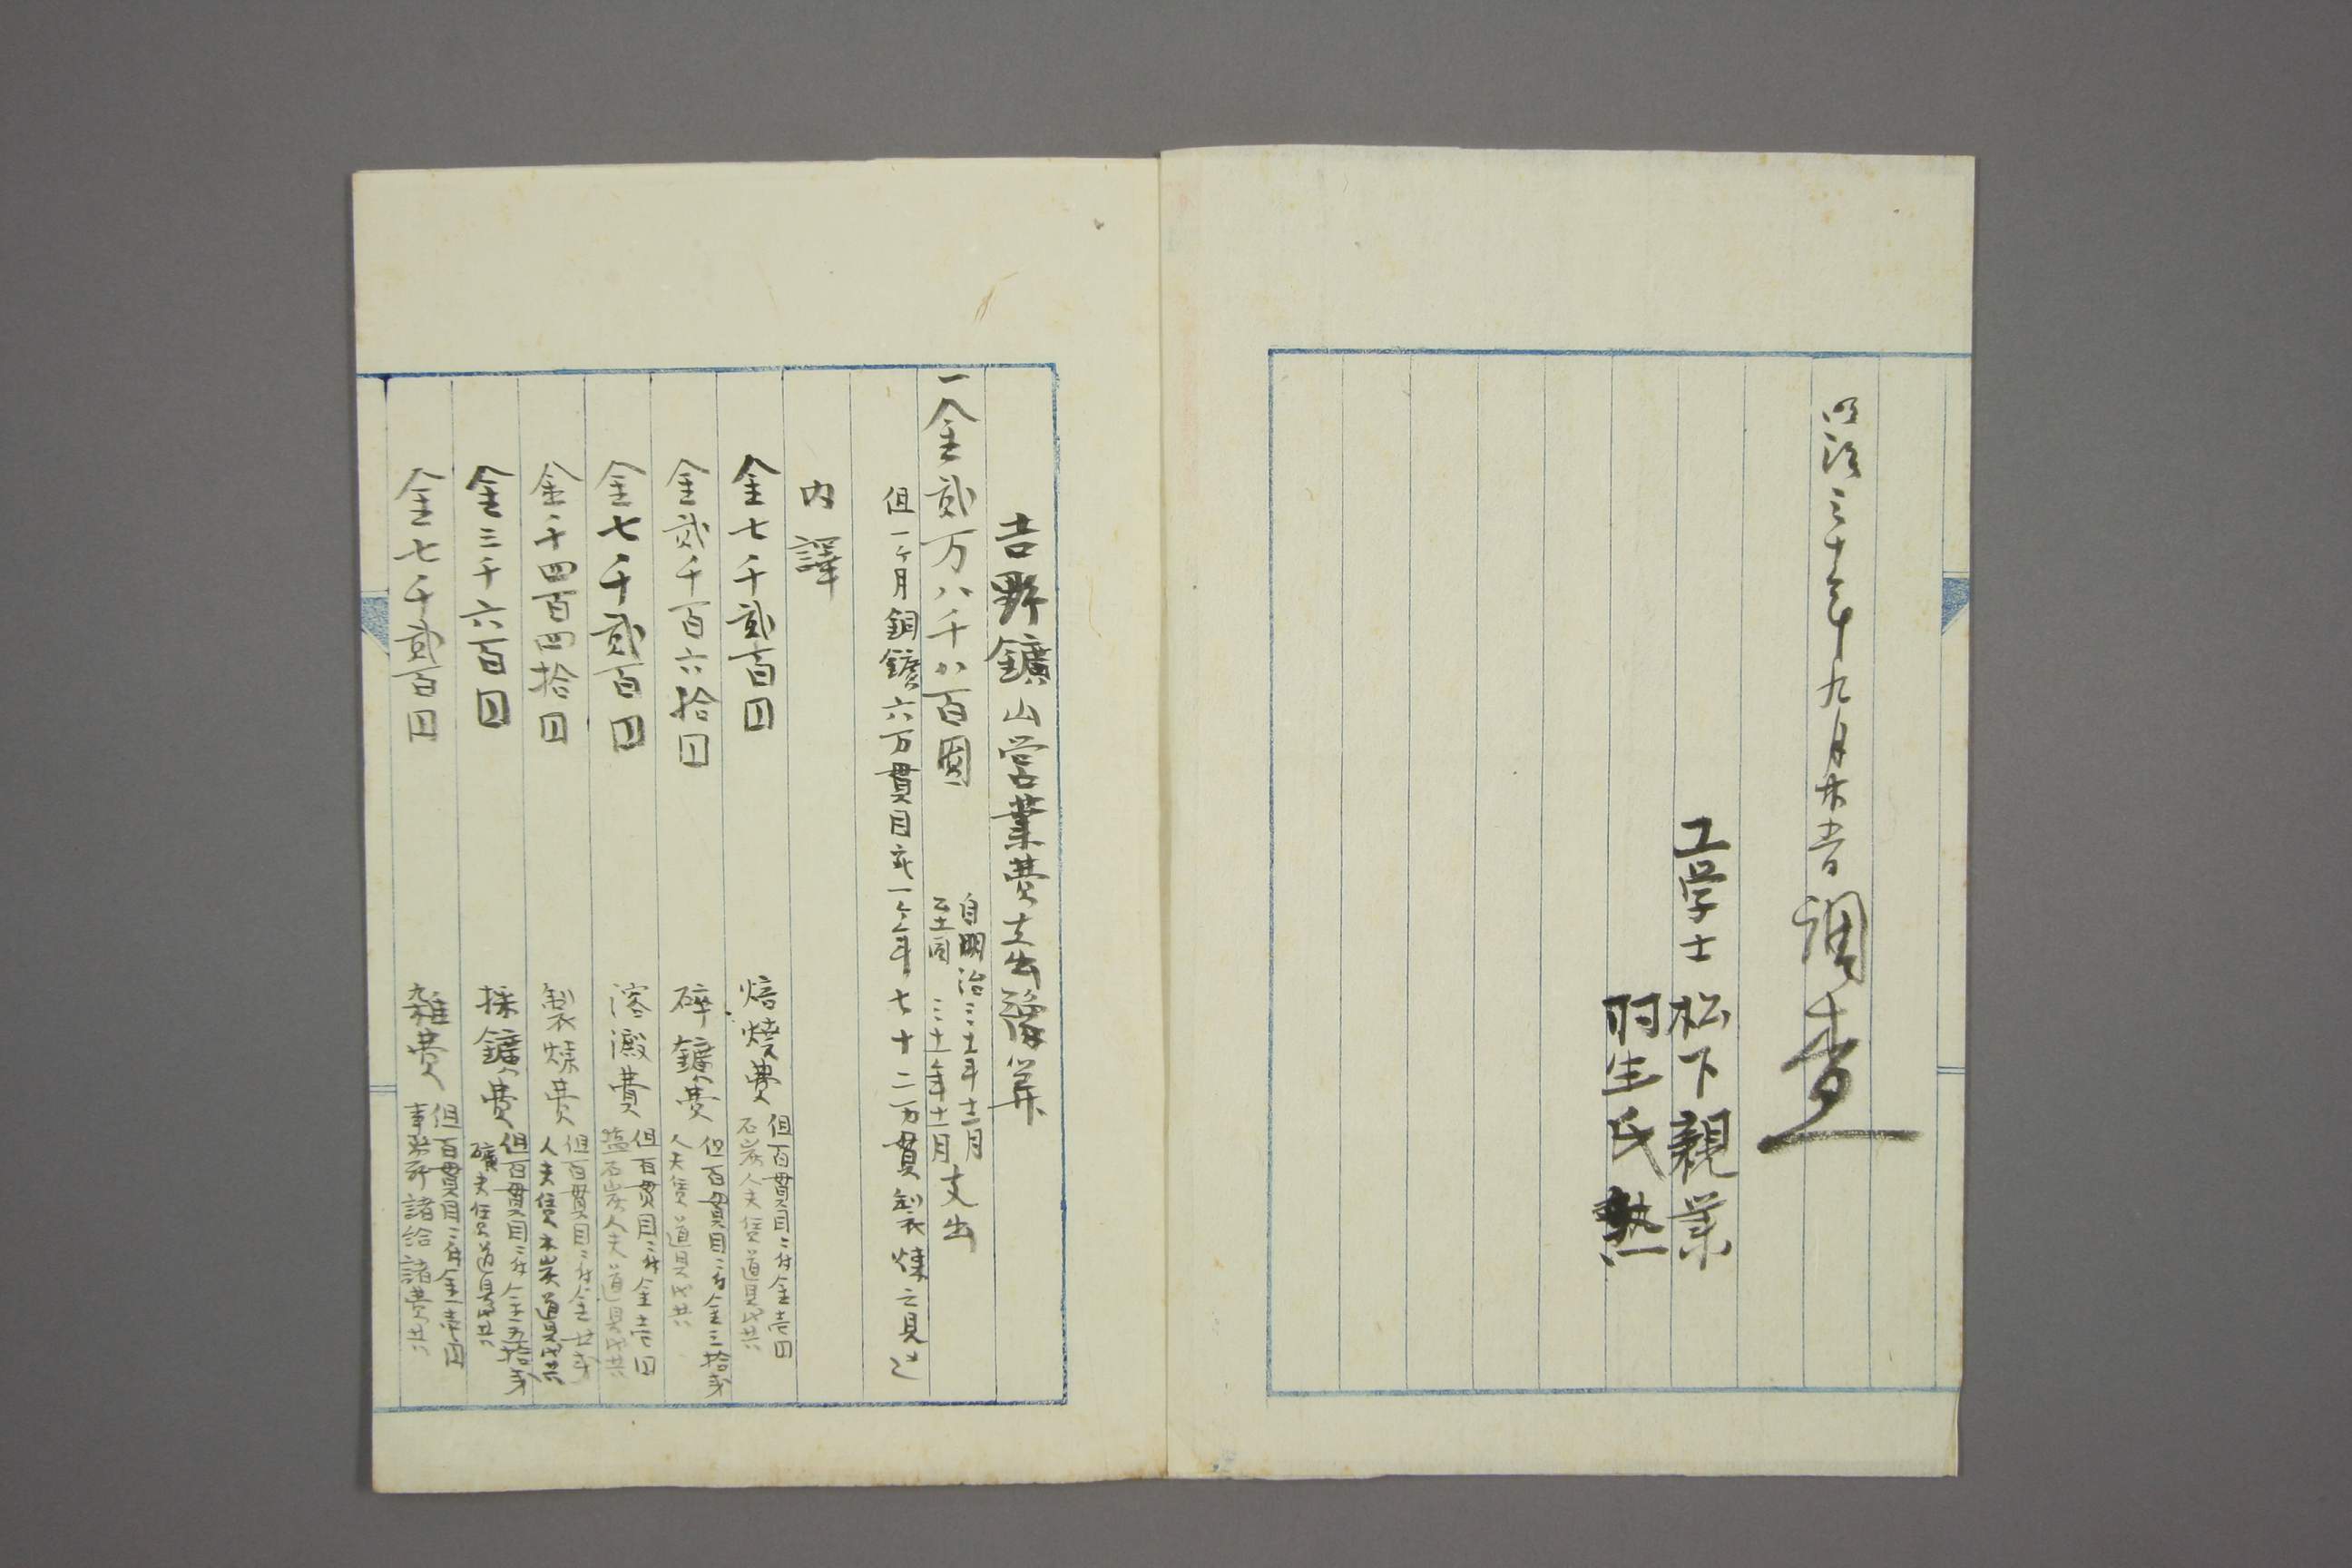 明治三十年九月
調査
工学士 松下親業
羽生氏熟
吉野鑛山営業費支出豫算
一金貳万八千八百圓 自明治三十年十二月
至同三十一年十一月 支出
但一ヶ月銅鑛六万貫目宛一ヶ年七十二万貫製煉之見込
内譯
金七千貳百円 焙燒費 但百貫目ニ付金壱円
石炭人夫賃道具代共
金貳千百六拾円 碎鑛費 但百貫目ニ付金三拾戋
人夫賃道具代共
金七千貳百円 溶澱費 但百貫目ニ付金壱円
塩石炭人夫道具代共
金千四百四拾円 製煉費 但百貫目ニ付金廿戋
人夫賃木炭道具代共
金三千六百円 採鑛費 但百貫目ニ付金五拾戋
礦夫賃道具代共
金七千貳百円 雑費 但百貫目ニ付金壱円
事務所諸給諸費共